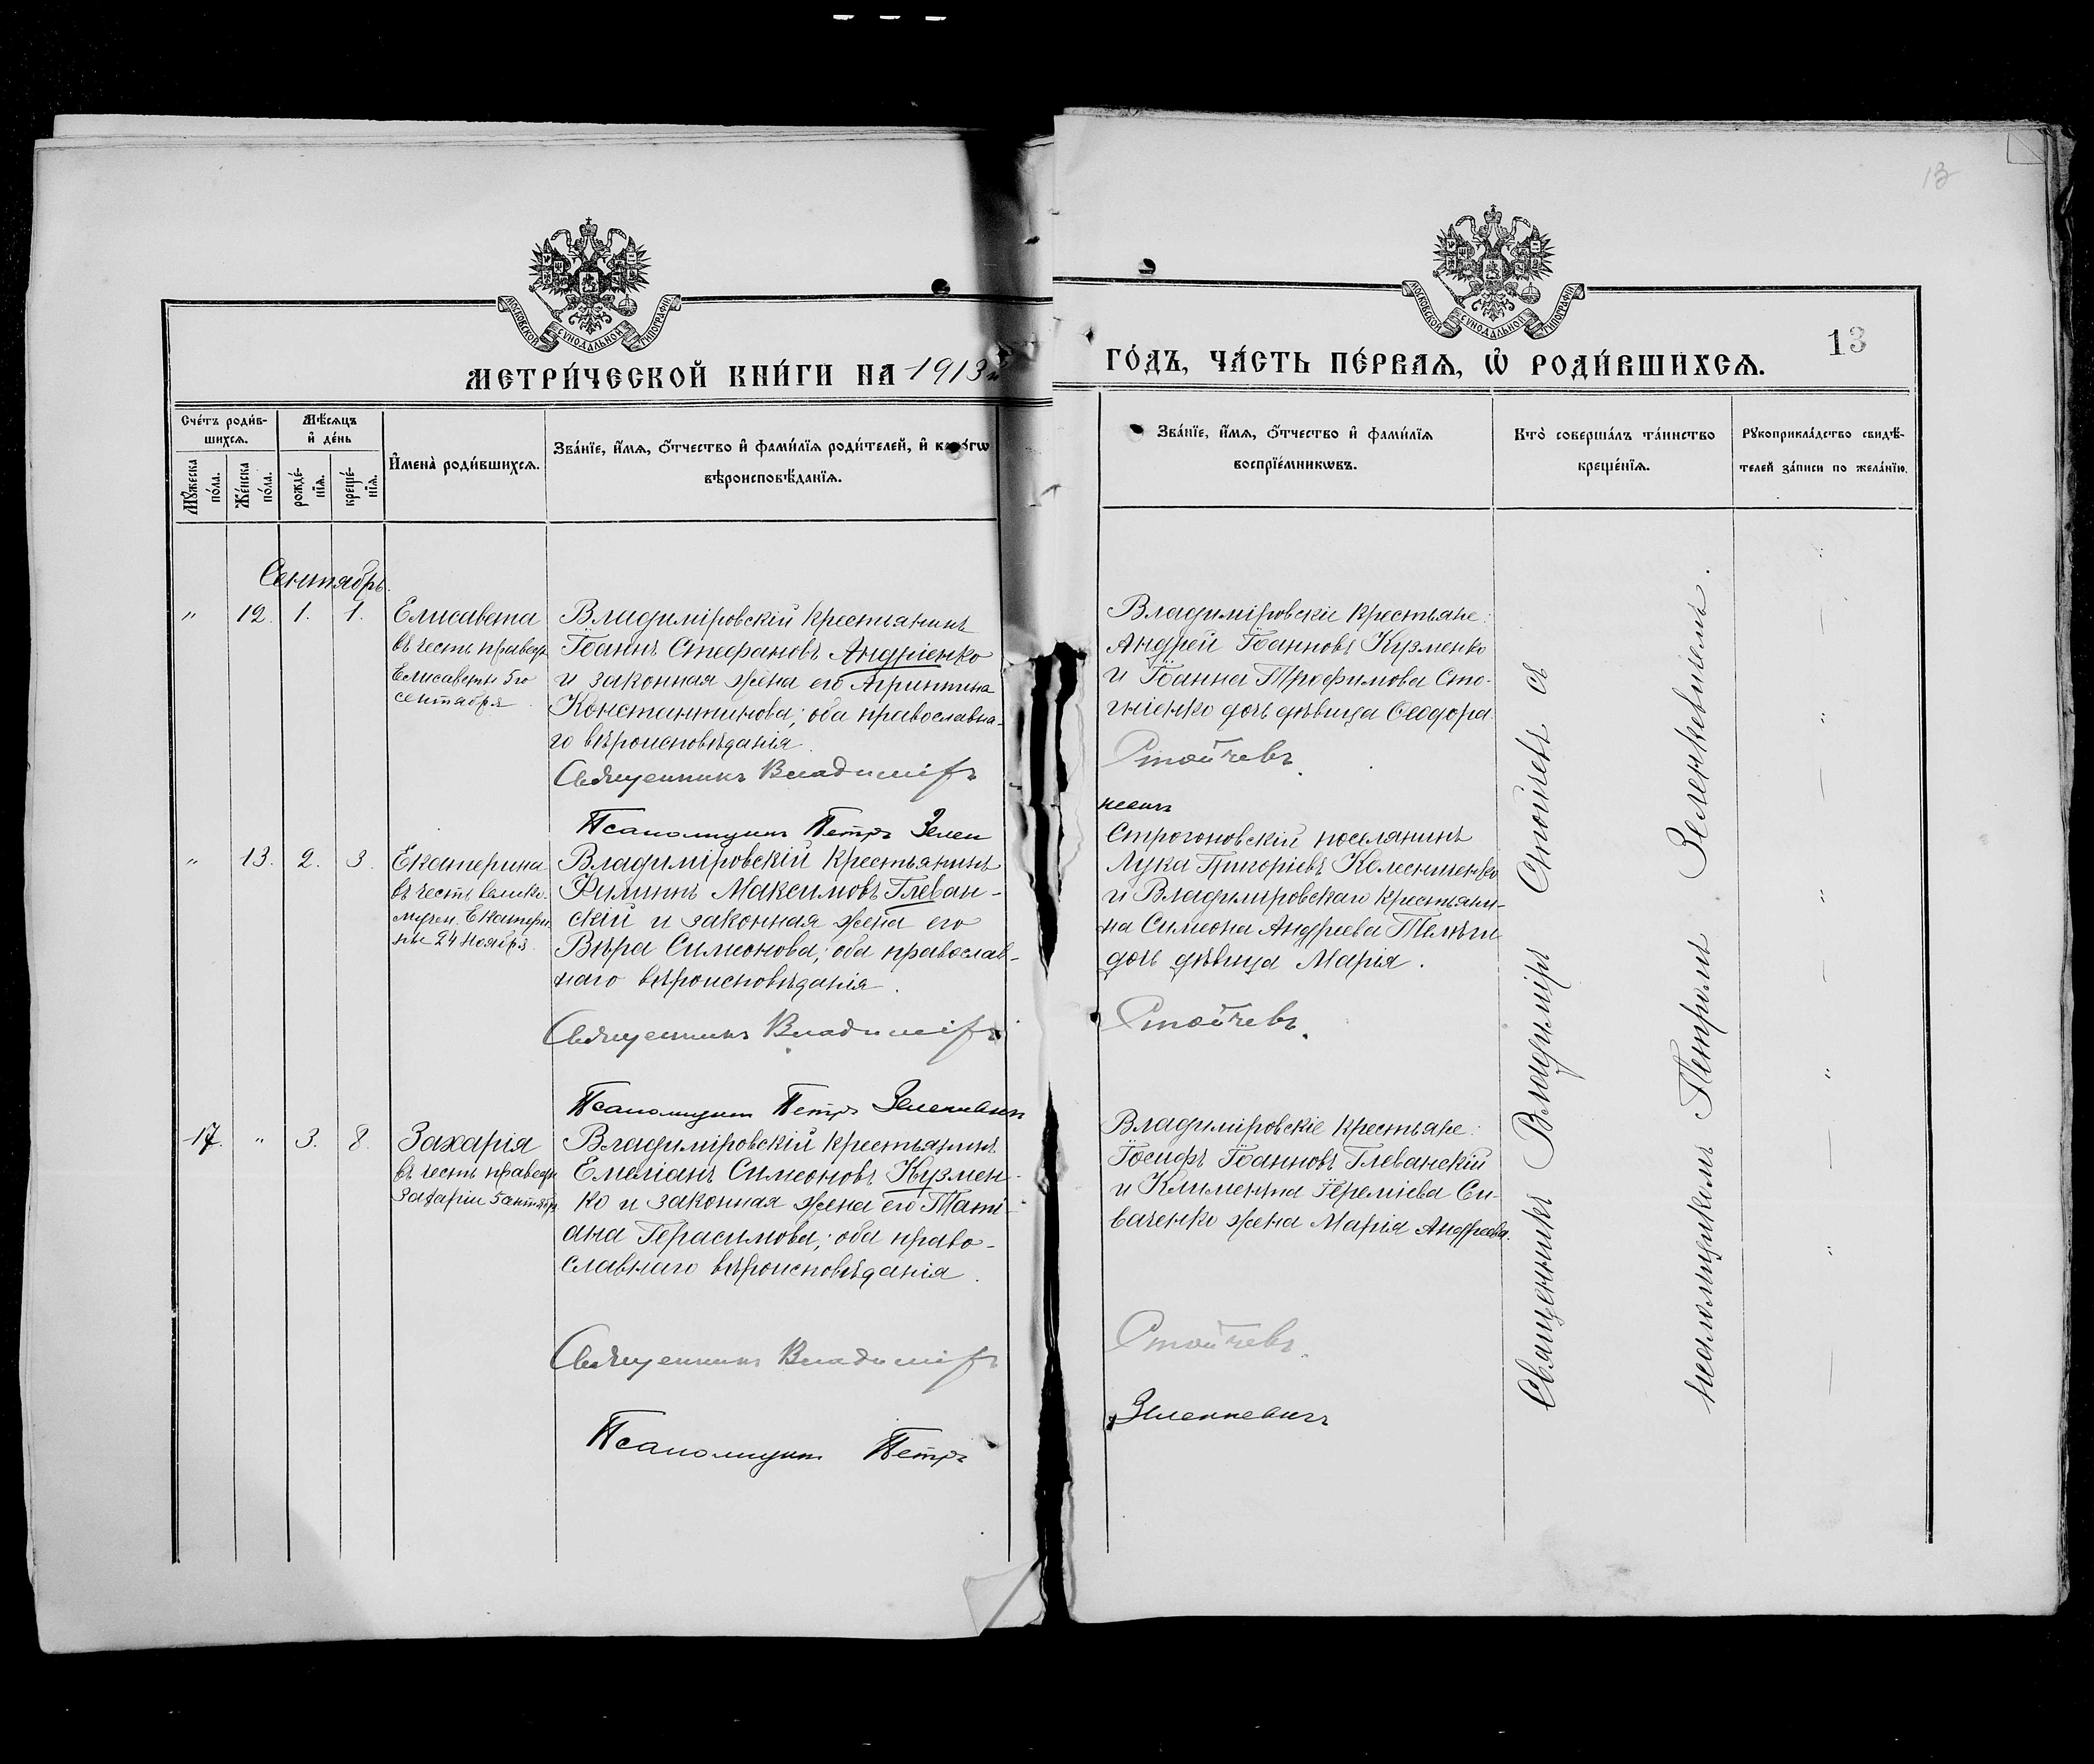 13
МОСКОВСКОЙ СѴНОДАЛЬНОЙ ТИПОГРАФІИ
МОСКОВСКОЙ СѴНОДАЛЬНОЙ ТИПОГРАФІИ
13
МЕТРИ́ЧЕСКОЙ КНИ́ГИ НА 1913 й
ГО́ДЪ, ЧА́СТЬ ПЕ́РВАѦ, Ѡ҆ РОДИ́ВШИХСѦ.
Сче́тъ роди́в-
шихсѧ.
Мѣ́сѧцъ
и҆ де́нь
Мꙋ́жеска
по́ла.
Же́нска
по́ла.
рожде́-
нїѧ.
креще́-
нїѧ.
И҆мена̀ роди́вшихсѧ.
Зва́нїе, и҆́мѧ, ѻ҆́тчество и҆ фами́лїѧ роди́телей, и҆ како́гѡ
вѣроисповѣ́данїѧ.
Зва́нїе, и҆́мѧ, ѻ҆́тчество и҆ фами́лїѧ
воспрїе́мникѡвъ.
Кто̀ соверша́лъ та́инство
креще́нїѧ.
Рꙋкоприкла́дство свидѣ́-
телей за́писи по жела́нїю.
Сентябрь.
" 12. 1. 1.
Елисавета
въ честь правед.
Елисаветы 5го
сентября
Владиміровскій крестьянинъ
Іоаннъ Стефановъ Андріенко
и законная жена его Агриппина
Константинова; оба православна-
го вѣроисповѣданія.
Священникъ Владиміръ
Псаломщикъ Петръ Зелен
Владиміровскіе крестьяне:
Андрей Іоанновъ Кузменко
и Іоанна Трофимова Сто-
гніенко дочь дѣвица Ѳеодора.
Стойчевъ.
" 13. 2. 3.
Екатерина
въ честь велико-
мучен. Екатери
ны 24 ноября.
Владиміровскій крестьянинъ
Филиппъ Максимовъ Глеван-
скій и законная жена его
Вѣра Симеонова; оба православ-
наго вѣроисповѣданія.
Священникъ Владиміръ
Псаломщикъ Петръ Зеленкевич
Строгоновскій поселянинъ
Лука Григоріевъ Колесниченко
и Владиміровскаго крестьяни-
на Симеона Андреева Телѣги
дочь дѣвица Марія.
Стойчевъ.
17. " 3. 8.
Захарія
въ честь праведн
Захаріи 5 сентября
Владиміровскій крестьянинъ
Емеліанъ Симеоновъ Кузмен-
ко и законная жена его Таті-
ана Герасимова; оба право-
славнаго вѣроисповѣданія.
Священникъ Владиміръ
Псаломщикъ Петръ
Владиміровскіе крестьяне:
Іосифъ Іоанновъ Глеванскій
и Климента Іереміева Си-
ваченко жена Марія Андреева.
Стойчевъ.
Зеленкевичъ
Священникъ Владиміръ Стойчевъ съ
псаломщикомъ Петромъ Зеленкевичемъ.